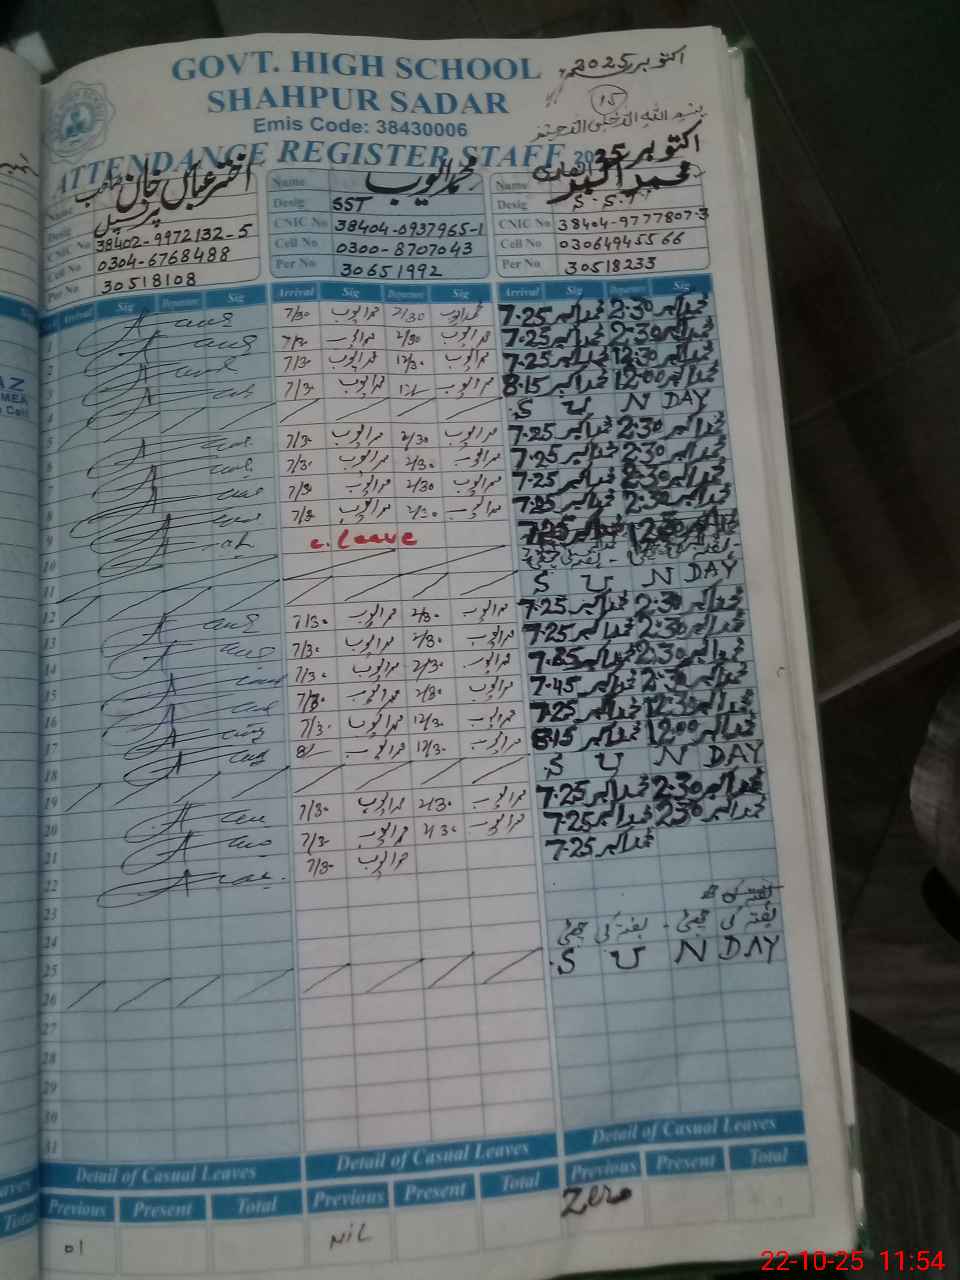 GOVT. HIGH SCHOOL
SHAHPUR SADAR
Emis Code: 38430006
ATTENDANCE REGISTER STAFF
اکتوبر 2025
15
بسم اللہ الرحمن الرحیم
اکتوبر 2025
Name اختر عباس خان صاحب
Desig پرنسپل
CNIC No 38402-9972132-5
Cell No 0304-6768488
Per No 30518108
Name محمد ایوب
Desig SST
CNIC No 38404-0937965-1
Cell No 0300-8707043
Per No 30651992
Name محمد اکبر
Desig S.S.T
CNIC No 38404-9777807-3
Cell No 03064945566
Per No 30518233
Arrival Sig Departure Sig Arrival Sig Departure Sig Arrival Sig Departure Sig
1 7/30 محمد ایوب 2/30 محمد ایوب 7.25 محمد اکبر 2:30 محمد اکبر
2 محمد ایوب 2/30 محمد ایوب 7.25 محمد اکبر 2:30 محمد اکبر
3 7/3. محمد ایوب 12/3. محمد ایوب 7.25 محمد اکبر 12:30 محمد اکبر
4 7/3. محمد ایوب محمد ایوب 8.15 محمد اکبر 12:00 محمد اکبر
5 S U N DAY
6 7/3. محمد ایوب 2/30 محمد ایوب 7.25 محمد اکبر 2:30 محمد اکبر
7 7/3. محمد ایوب 2/3. محمد ایوب 7.25 محمد اکبر 2:30 محمد اکبر
8 7/3 محمد ایوب 2/30 محمد ایوب 7.25 محمد اکبر 2:30 محمد اکبر
9 7/3 محمد ایوب 2/3. محمد ایوب 7.25 محمد اکبر 2:30 محمد اکبر
10 c. leave 7.25 12:30
11 ہفتہ کی چھٹی - ہفتہ کی چھٹی
12 S U N DAY
13 7/3. محمد ایوب 2/3. محمد ایوب 7.25 محمد اکبر 2:30 محمد اکبر
14 7/3. محمد ایوب 2/3. محمد ایوب 7.25 محمد اکبر 2:30 محمد اکبر
15 7/3. محمد ایوب 2/3. محمد ایوب 7.25 محمد اکبر 2:30 محمد اکبر
16 7/3. محمد ایوب 2/30 محمد ایوب 7.45 محمد اکبر 2:30 محمد اکبر
17 7/3. محمد ایوب 12/3. محمد ایوب 7.25 محمد اکبر 12:30 محمد اکبر
18 8/ محمد ایوب 12/3. محمد ایوب 8.15 محمد اکبر 12:00 محمد اکبر
19 S U N DAY
20 7/3. محمد ایوب 2/3. محمد ایوب 7.25 محمد اکبر 2:30 محمد اکبر
21 7/3. محمد ایوب 2/3. محمد ایوب 7.25 محمد اکبر 2:30 محمد اکبر
22 7/3. محمد ایوب 7.25 محمد اکبر
23
24
25 ہفتہ کی چھٹی - ہفتہ کی چھٹی
26 S U N DAY
27
28
29
30
31
Detail of Casual Leaves Detail of Casual Leaves Detail of Casual Leaves
Previous Present Total Previous Present Total Previous Present Total
01 NIL Zero
22-10-25 11:54